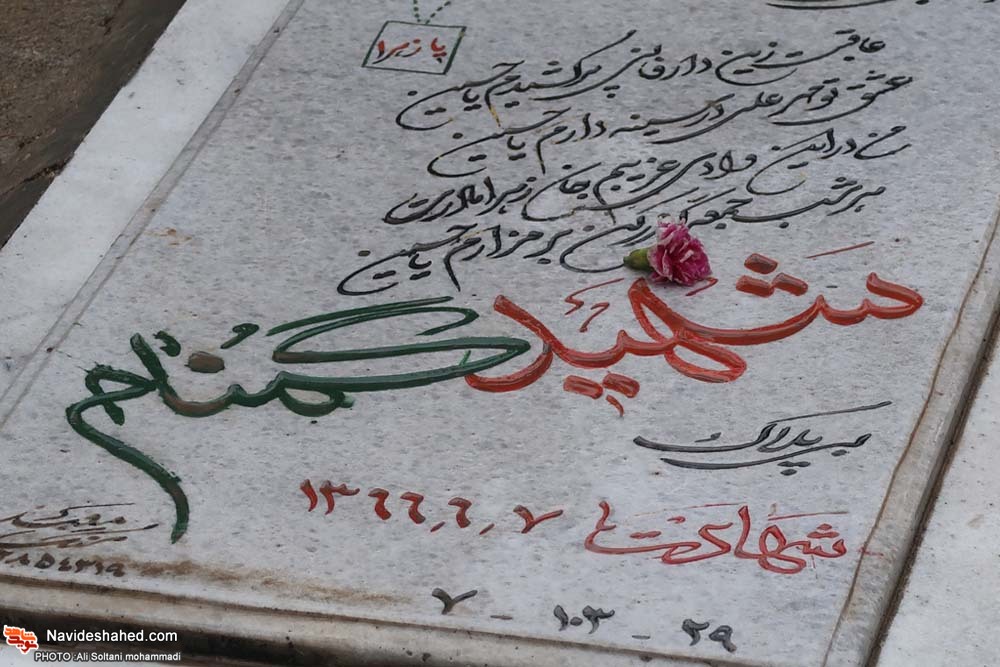 یا زهرا
عاقبت زین دار فانی پر کشیدم یا حسین
عشق تو مهر علی در سینه دارم یا حسین
من در این وادی غریبم جان زهرا مادرت
هر شب جمعه گذر کن بر مزارم یا حسین
شهید گمنام
بی پلاک
شهادت ۱۳۶۶٫۶٫۷
۲۹ - ۱۰۳ - ۷
Navideshahed.com
PHOTO :Ali Soltani mohammadi